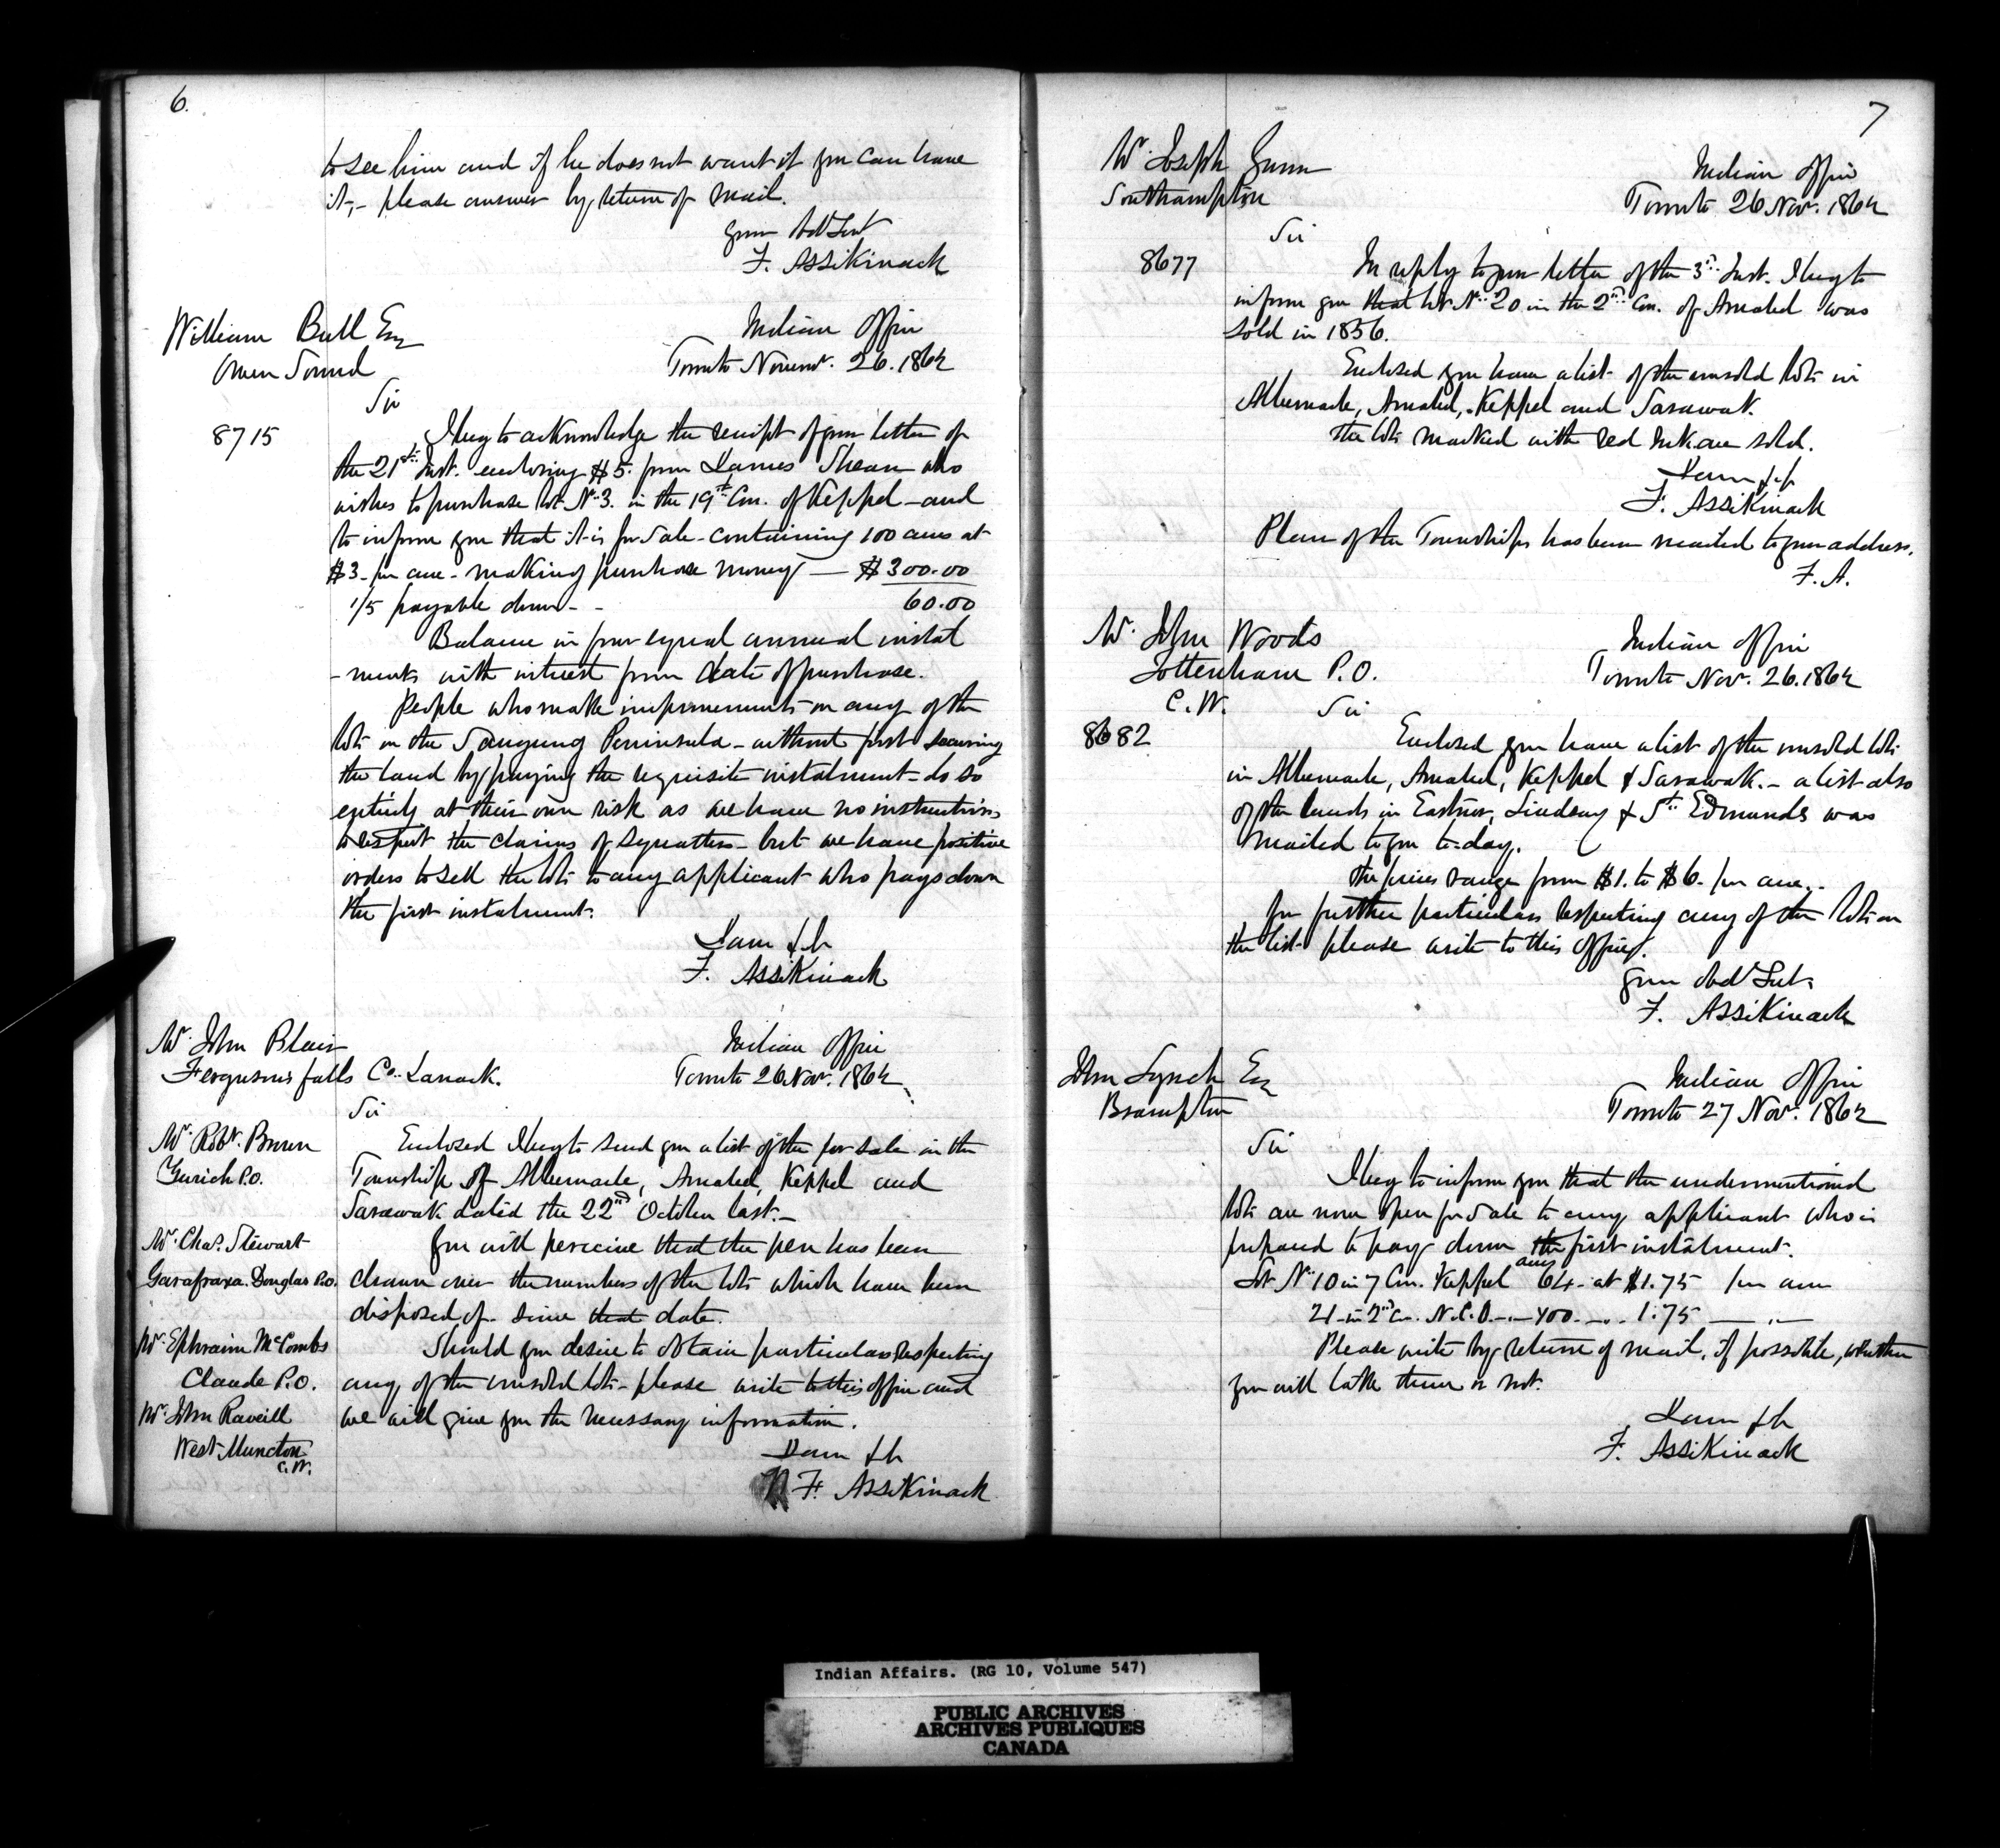 6.
to see him and if he does not want it you can have
it,- please answer by return of mail.
Your Obdt Servt
F. Assikinack
William Bull Esq
Owen Sound
Indian Office
Toronto Novemr. 26. 1862
Sir
8715
I beg to acknowledge the receipt of your letter of
the 21st Inst. enclosing $5. from James Shean who
wishes to purchase lot No 3. in the 19th Con. of Keppel - and
to inform you that it is for Sale - containing 100 acres at
$3- per acre - making purchase money — $300.00
1/5 payable down - - 60.00
Balance in four equal annual instal
- ments with interest from date of purchase.
People who make improvements on any of the
lots on the Saugeeng Peninsula - without first securing
the land by paying the requisite instalment - do so
entirely at their own risk as we have no instructions
to respect the claims of squatters - but we have positive
orders to sell the lots to any applicant who pays down
the first instalment.
I am &c
F. Assikinack
Mr. John Blair
Fergusons falls Co. Lanark.
Indian Office
Toronto 26 Nov. 1862
Sir
Mr. Robt. Brown
Zurich P.O.
Mr. Chas. Stewart
Garafraxa. Douglas P.O.
Mr. Ephraim McCombs
Claude P.O.
Mr. John Raveill
West Muncton
C.W.
Enclosed I beg to send you a list of the for sale in the
Township of Albemarle, Amabel, Keppel and
Sarawak dated the 22nd October last.-
You will perceive that the pen has been
drawn over the numbers of the lots which have been
disposed of since that date.
Should you desire to obtain particulars respecting
any of the unsold lots - please write to this office and
we will give you the necessary information.
I am &c
F. Assikinack
7
Mr. Joseph Gunn
Southampton
Indian Office
Toronto 26 Nov. 1862
Sir
8677
In reply to your letter of the 3rd Inst. I beg to
inform you that lot No 20 in the 2nd Con. of Amabel was
sold in 1856.
Enclosed you have a list of the unsold lots in
Albemarle, Amabel, Keppel and Sarawak.
The lots marked with red ink are sold.
I am &c
F. Assikinack
Plan of the Townships has been mailed to your address.
F. A.
Mr. John Woods
Tottenham P.O.
C.W.
Indian Office
Toronto Nov. 26. 1862
Sir
8682
Enclosed you have a list of the unsold lots
in Albemarle, Amabel, Keppel & Sarawak. - a list also
of the lands in Eastnor, Lindsay & St. Edmunds was
mailed to you to-day.
The prices range from $1. to $6. per acre.
for further particulars respecting any of the lots on
the list please write to this office.
Your Obdt Servt
F. Assikinack
John Lynch Esq
Brampton
Indian Office
Toronto 27 Nov. 1862
Sir
I beg to inform you that the undermentioned
lots are now open for Sale to any applicant who is
prepared to pay down the first instalment.
Lot No 10 in 7 Con. Keppel acres 64 - at $1.75 per acre
21 - in 2nd Con. N.E.D. -"- 400 -"- 1.75 — " —
Please write by return of mail, if possible, whether
you will take them or not.
I am &c
F. Assikinack
Indian Affairs. (RG 10, Volume 547)
PUBLIC ARCHIVES
ARCHIVES PUBLIQUES
CANADA